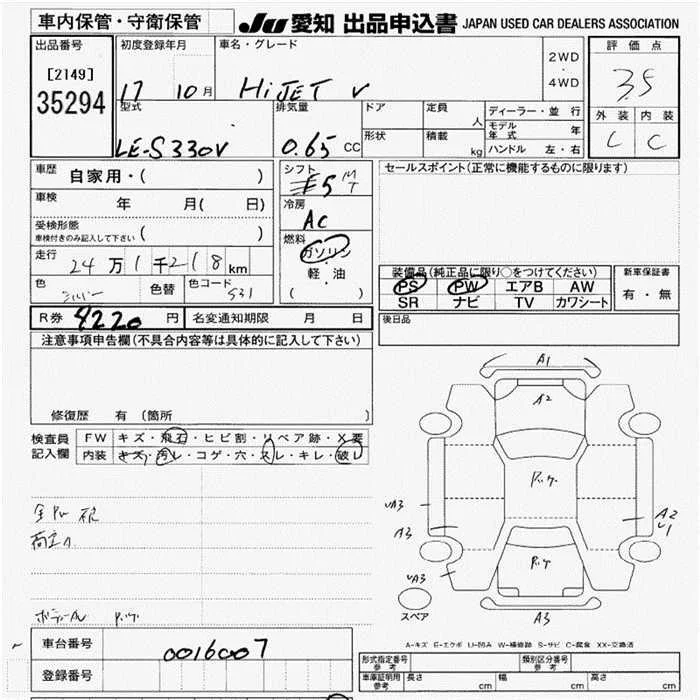 車内保管・守衛保管
JU 愛知 出品申込書 JAPAN USED CAR DEALERS ASSOCIATION
出品番号
[2149]
35294
初度登録年月
17 10月
車名・グレード
HiJET V
2WD
・
4WD
評価点
3.5
外装 内装
C C
型式
LE-S330V
排気量
0.65 CC
ドア
定員
人
形状
積載
kg
ディーラー・並行
モデル年式 年
ハンドル 左・右
車歴
自家用・( )
車検 年 月( 日)
受検形態
車検付きのみ記入して下さい ( )
走行
24万1千218km
色 シルバー 色替 色コード S31
シフト
F5MT
冷房
AC
燃料
ガソリン
軽・油
( )
セールスポイント(正常に機能するものに限ります)
装備品(純正品に限り○をつけてください)
PS PW エアB AW
SR ナビ TV カワシート
新車保証書
有・無
後日品
R券 4220 円 名変通知期限 月 日
注意事項申告欄(不具合内容等は具体的に記入して下さい)
修復歴 有 (箇所 )
検査員
記入欄
FW キズ・飛石・ヒビ割・リペア跡・X要
内装 キズ・汚レ・コゲ・穴・スレ・キレ・破レ
A1
A2
A3
A3
A2
U1
A3
A3
スペア
A-キズ E-エクボ U-凹み W-補修跡 S-サビ C-腐食 XX-交換済
車台番号 0016007
登録番号
形式指定番号
参考
類別区分番号
参考
車庫証明用
参考
長さ cm 幅 cm 高さ cm